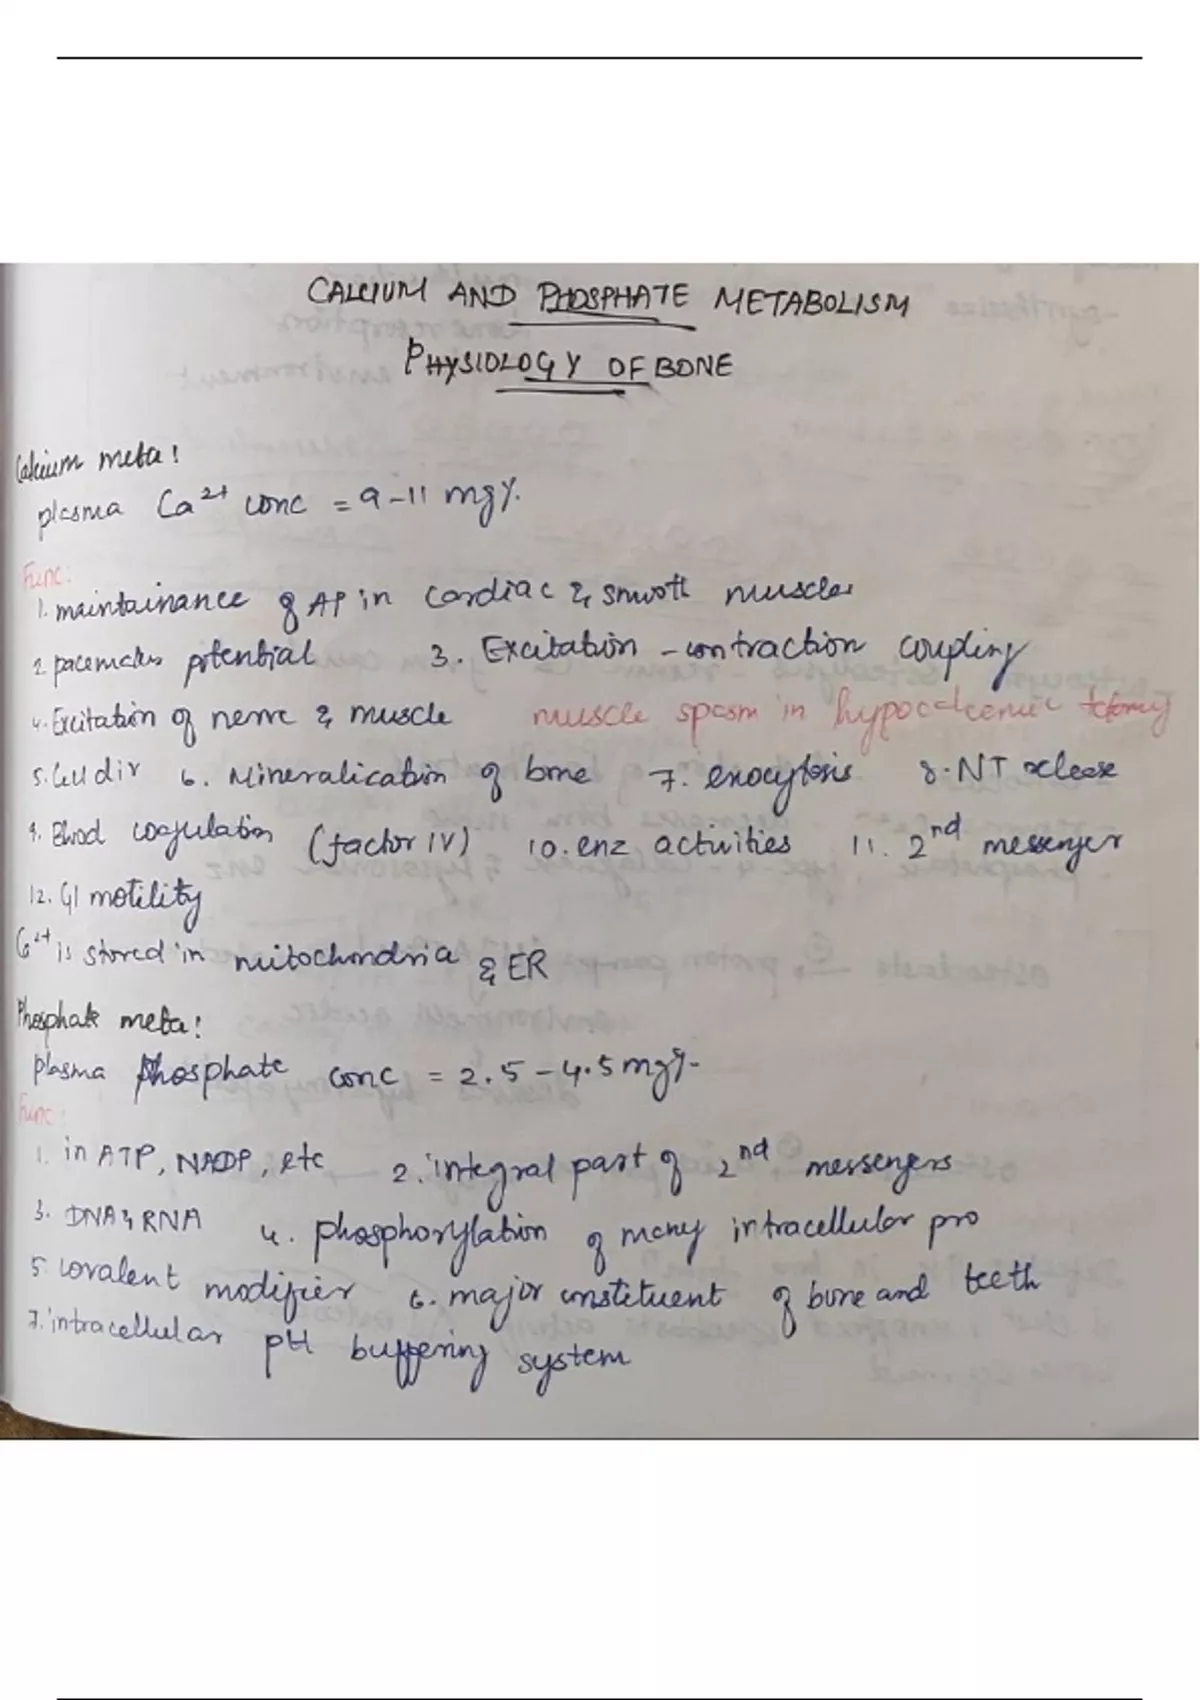 CALCIUM AND PHOSPHATE METABOLISM
PHYSIOLOGY OF BONE
Calcium meta:
plasma Ca2+ conc = 9-11 mg%.
Func:
1. maintainance of AP in cardiac & smooth muscles
2. pacemaker potential 3. Excitation - contraction coupling
4. Excitation of nerve & muscle muscle spasm in hypocalcemic tetany
5. Cell div 6. Mineralication of bone 7. exocytosis 8. NT release
9. Blood coagulation (factor IV) 10. enz activities 11. 2nd messenger
12. GI motility
Ca2+ is stored in mitochondria & ER
Phosphate meta:
plasma phosphate conc = 2.5 - 4.5 mg%.
Func:
1. in ATP, NADP, etc 2. integral part of 2nd messengers
3. DNA & RNA 4. phosphorylation of many intracellular pro
5. covalent modifier 6. major constituent of bone and teeth
7. intracellular pH buffering system